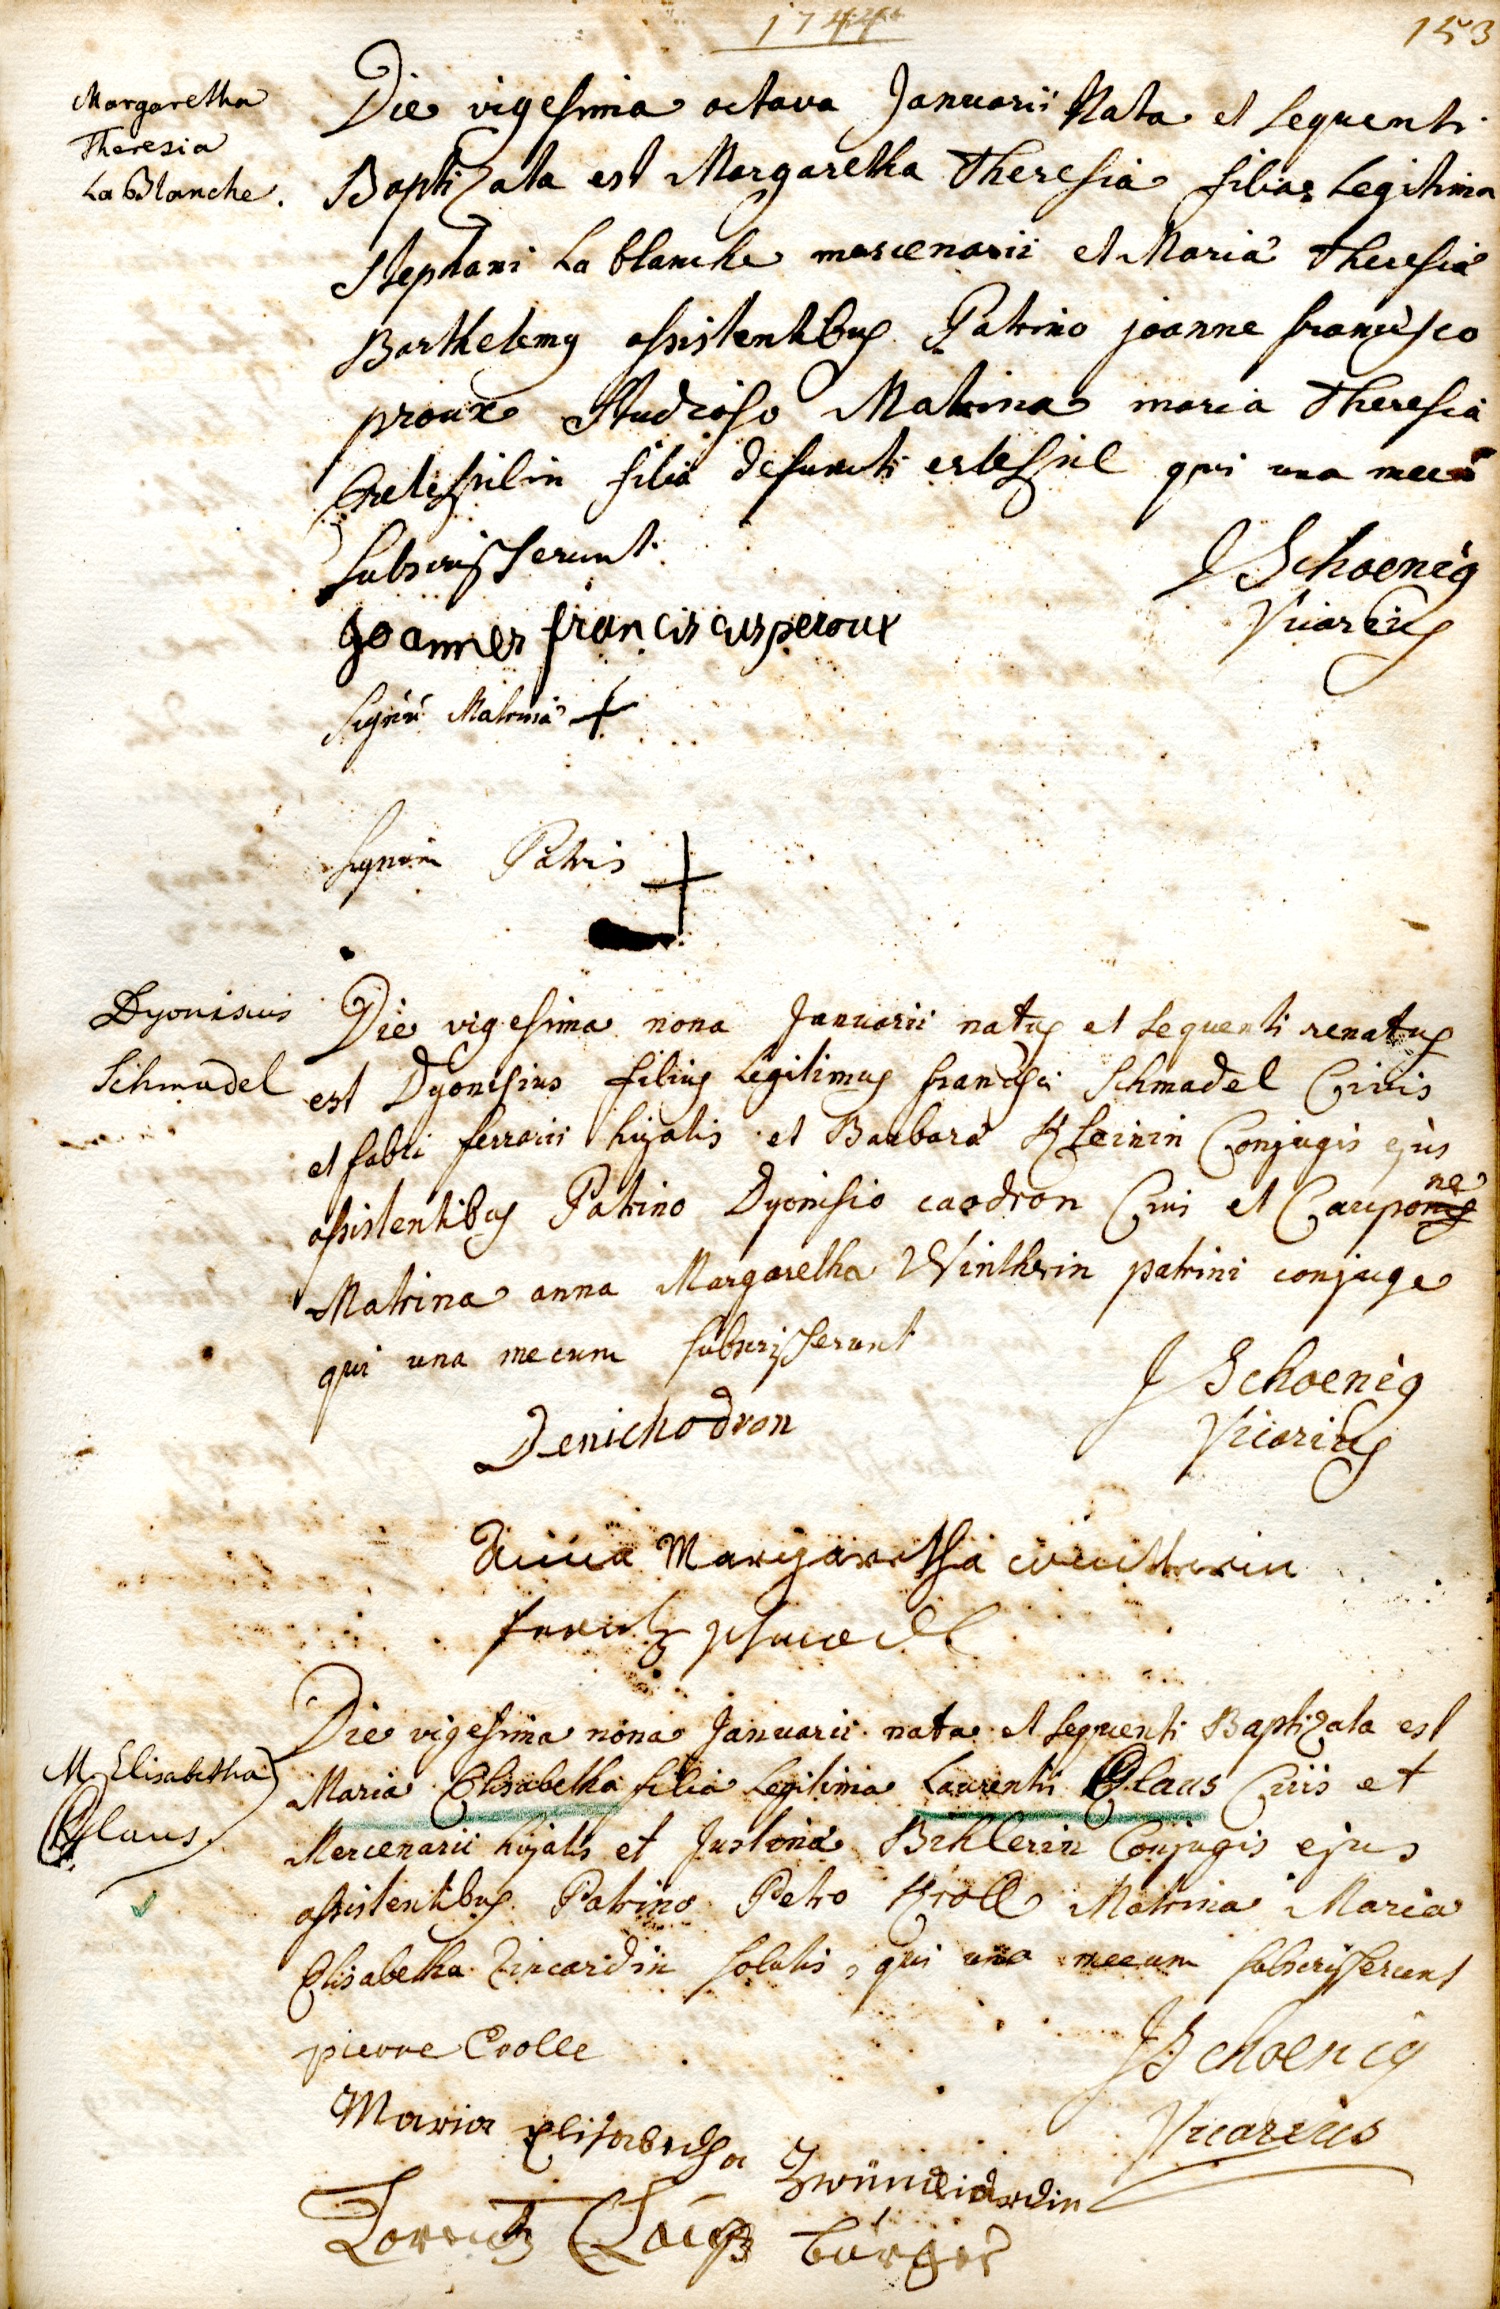 1744
153
Margaretha
Theresia
La Blanche.
Die vigesima octava Januarii Nata et sequenti
Baptizata est Margaretha Theresia filia Legitima
Stephani La blanche mercenarii et Maria Theresia
Barthelemy assistentibus Patrino joanne francisco
proux Studioso Matrina maria Theresia
filia defuncti qui una mecũ
subscripserunt.
J Schoenig
Vicarius
Joannes franciscus peroux
Signũ Matrinæ +
Signum Patris +
Dyonisius
Schmadel
Die vigesima nona Januarii natus et sequenti renatus
est Dyonisius filius Legitimus francisci Schmadel Civis
et fabri ferrarii hujatis et Barbara Kleinin Conjugis ejus
assistentibus Patrino Dyonisio caodron Civi et Caupone
Matrina anna Margaretha Wintherin patrini conjuge
qui una mecum subscripserunt
J Schoenig
Vicarius
Denichodron
Anna Margaretha wintherin
M. Elisabetha
Claus.
Die vigesima nona Januarii nata et sequenti Baptizata est
Maria Elisabetha filia Legitima Laurentii Claus Civis et
Mercenarii hujatis et Justina Bihlerin Conjugis ejus
assistentibus Patrino Petro Kroll Matrina Maria
Elisabetha Zincardin solutis, qui una mecum subscripserunt
pierre Crolle
J Schoenig
Vicarius
Maria Elisabedha
Lorentz Clauß burger